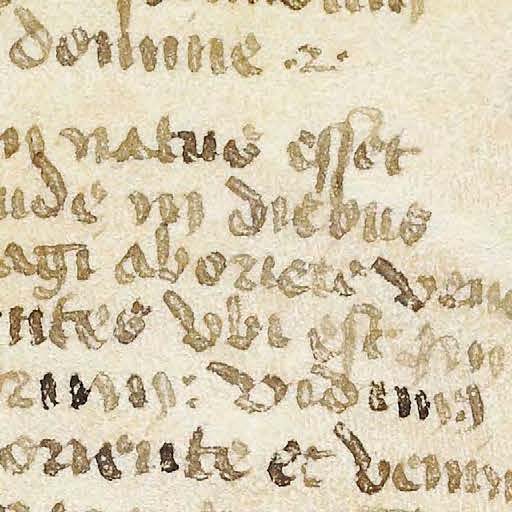 domine .2.
natus esset
ude in diebus
agi ab oriete veni
ntes vbi est hic
vidim
oriente et venim